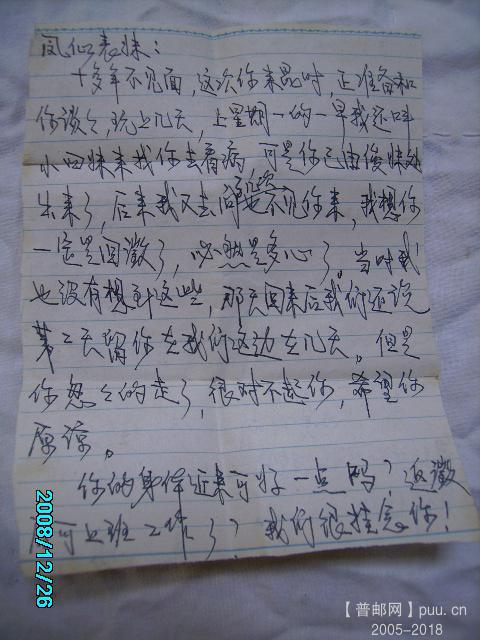 凤仙表妹：
十多年不见面，这次你来昆时，正准备和
你谈々，玩上几天，上星期一的一早我还叫
小四妹来找你去看病，可是你已由俊妹处
出来了，后来我又去问也不见你来，我想你
一定是回徽了，必然是多心了。当时我
也没有想到这些，那天回来后我们还说
第二天留你在我们这边在几天。但是
你忽々的走了，很对不起你，希望你
原谅。
你的身体近来可好一点吗？返徽
可上班工作了？我们很挂念你！
2008/12/26
【普邮网】puu.cn
2005-2018